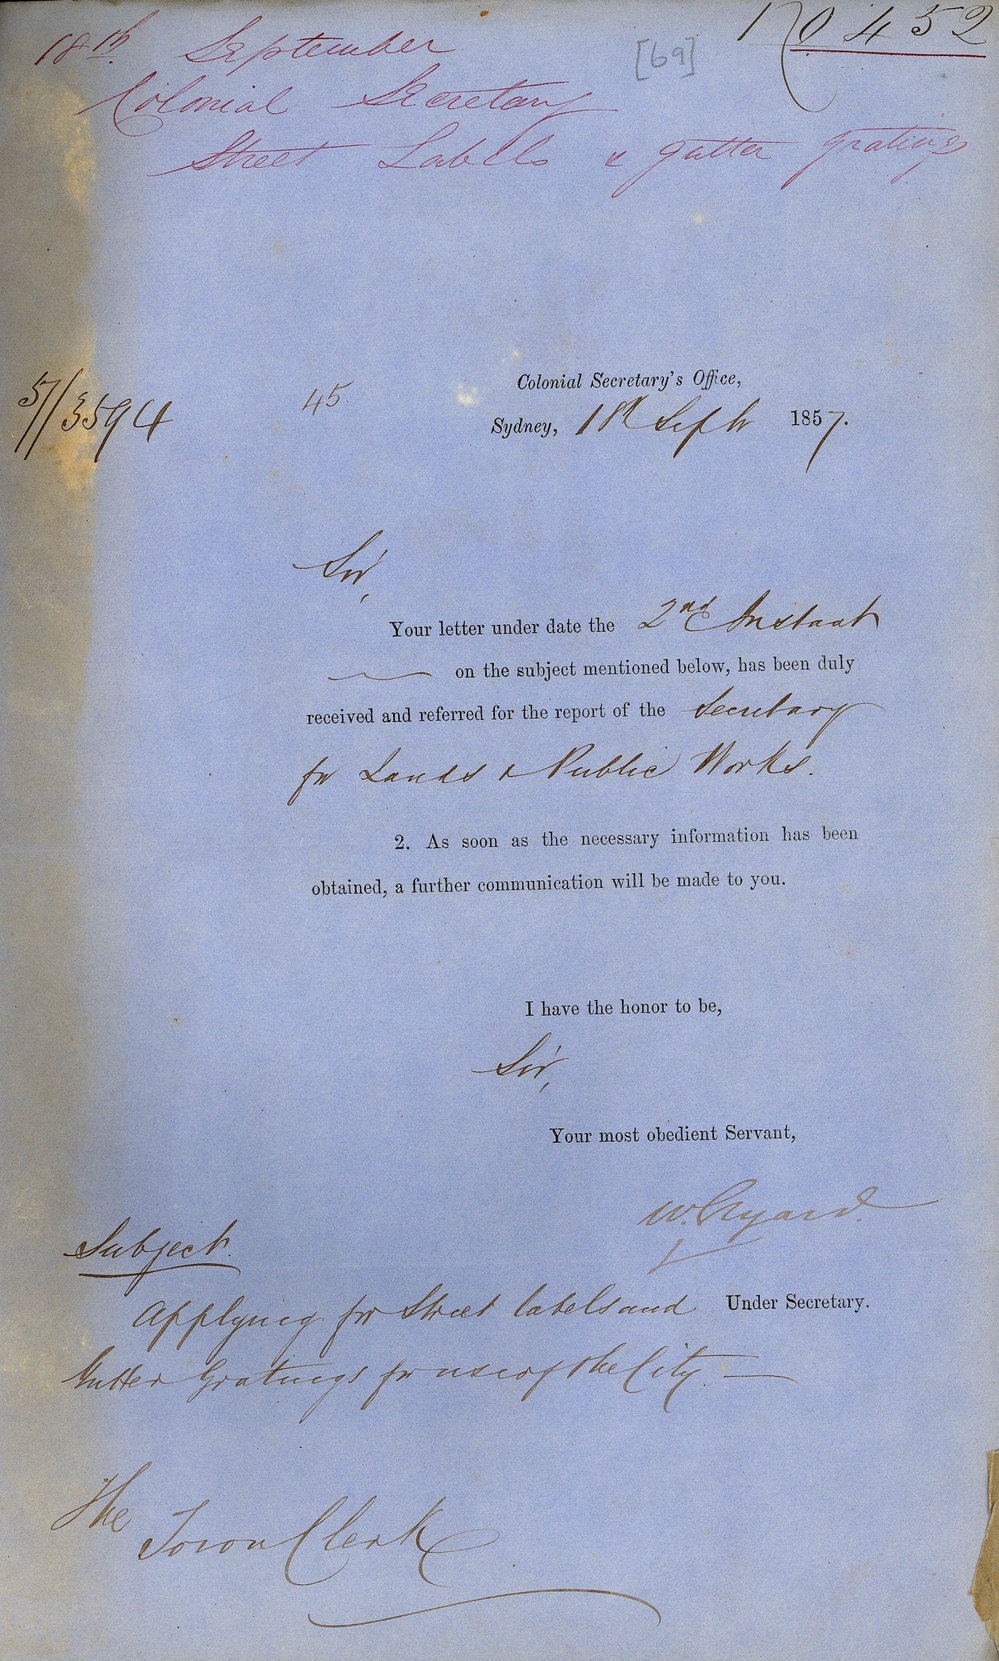 No 452
[69]
18th September
Colonial Secretary
Street Labels & gutter gratings
57/3594
45.
Colonial Secretary's Office,
Sydney, 18th Septr 1857.
Sir,
Your letter under date the 2nd Instant
on the subject mentioned below, has been duly
received and referred for the report of the Secretary
for Lands & Public Works.
2. As soon as the necessary information has been
obtained, a further communication will be made to you.
I have the honor to be,
Sir,
Your most obedient Servant,
W. Elyard.
Under Secretary.
Subject.
Applying for Street labels and
Gutter Gratings for use of the City.
The
Town Clerk